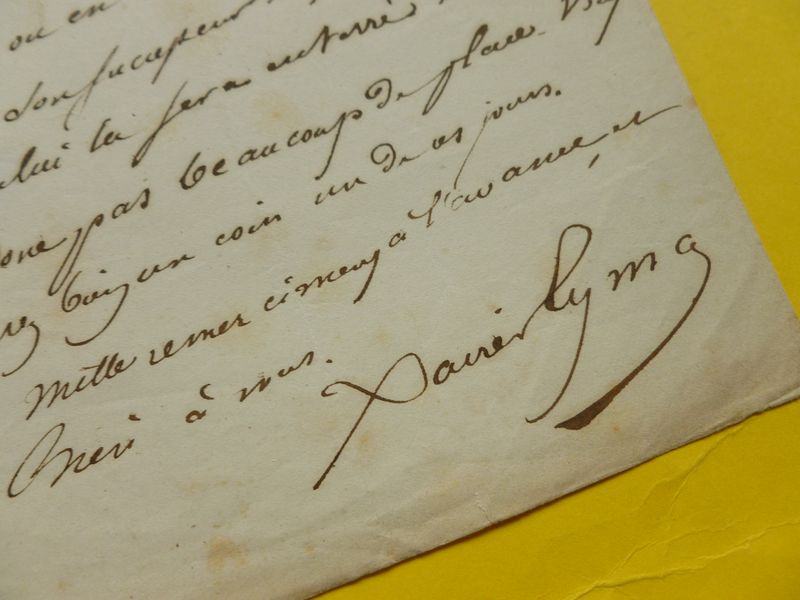 ou en
son successeur
lui la sera enterré
pas beaucoup de place.
bien un coin un de ces jours.
Mille remerciments à l'avance, et
à vous.
Xavier Eyma